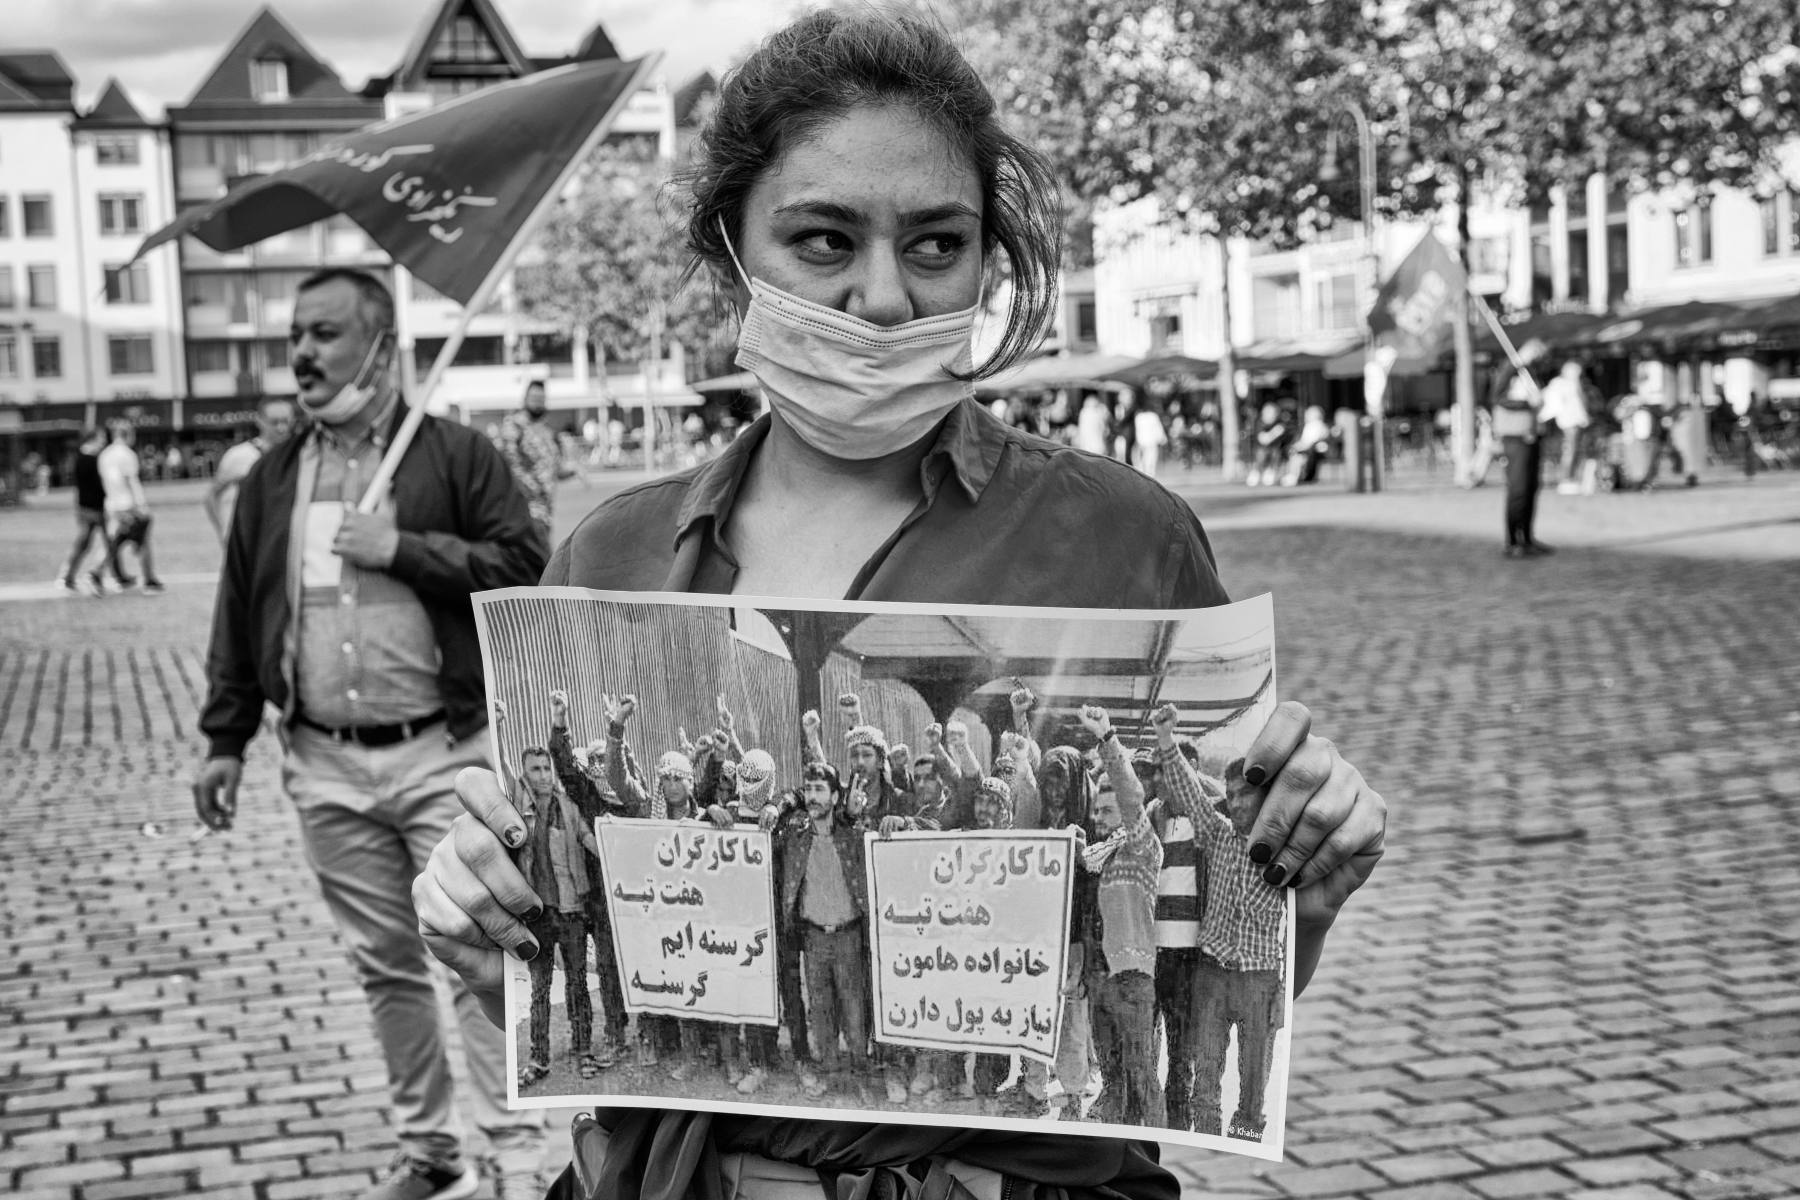 ما کارگران
هفت تپــه
گرسنه ایم
گرسنــه
ما کارگران
هفت تپــه
خانواده هامون
نیاز به پول دارن
© Khabar